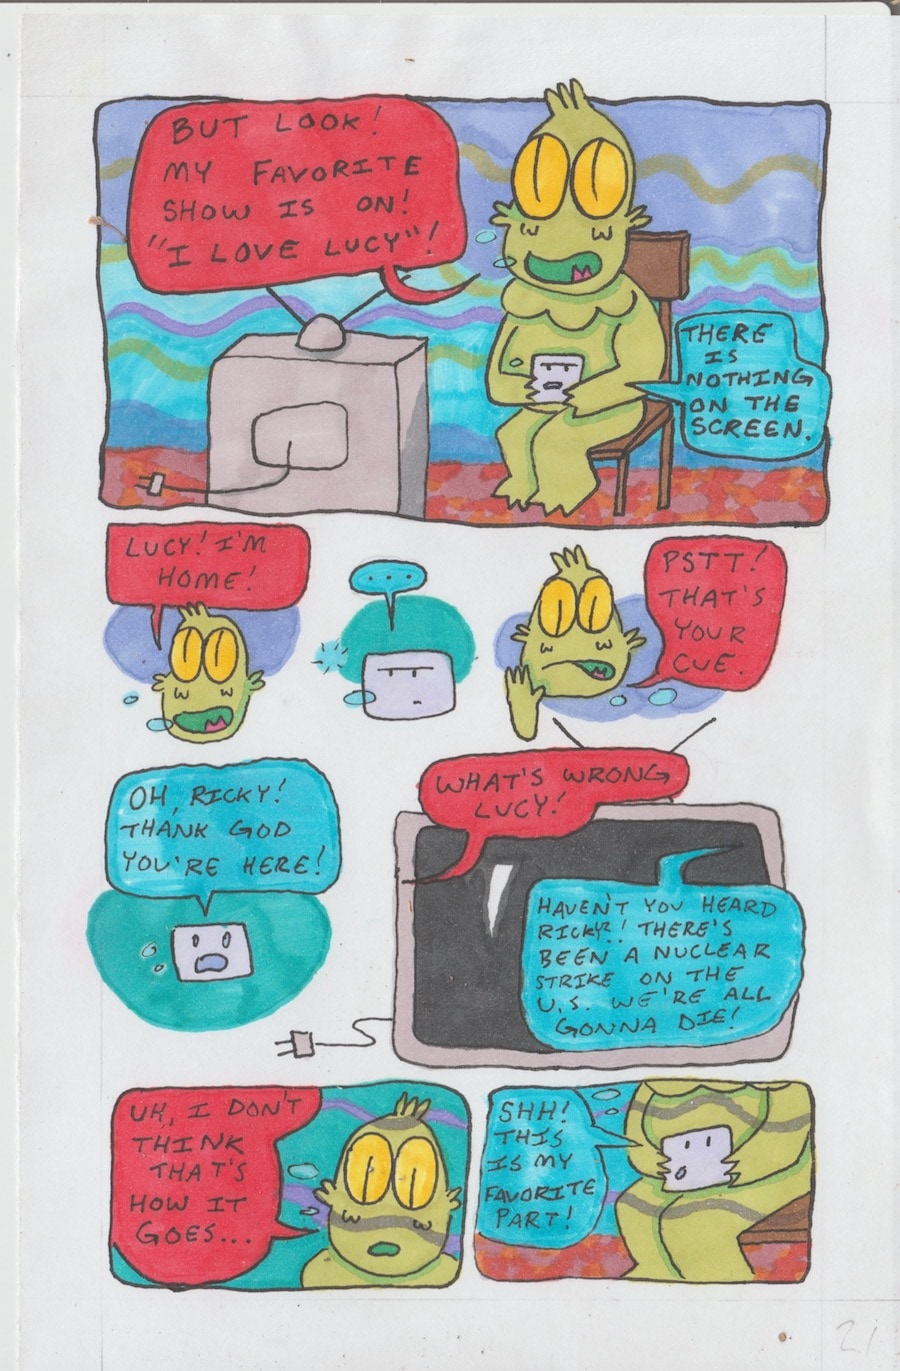 BUT LOOK!
MY FAVORITE
SHOW IS ON!
"I LOVE LUCY"!
THERE
IS
NOTHING
ON THE
SCREEN.
LUCY! I'M
HOME!
...
PSTT!
THAT'S
YOUR
CUE.
OH, RICKY!
THANK GOD
YOU'RE HERE!
WHAT'S WRONG
LUCY!
HAVEN'T YOU HEARD
RICKY?! THERE'S
BEEN A NUCLEAR
STRIKE ON THE
U.S. WE'RE ALL
GONNA DIE!
UH, I DON'T
THINK
THAT'S
HOW IT
GOES...
SHH!
THIS
IS MY
FAVORITE
PART!
21